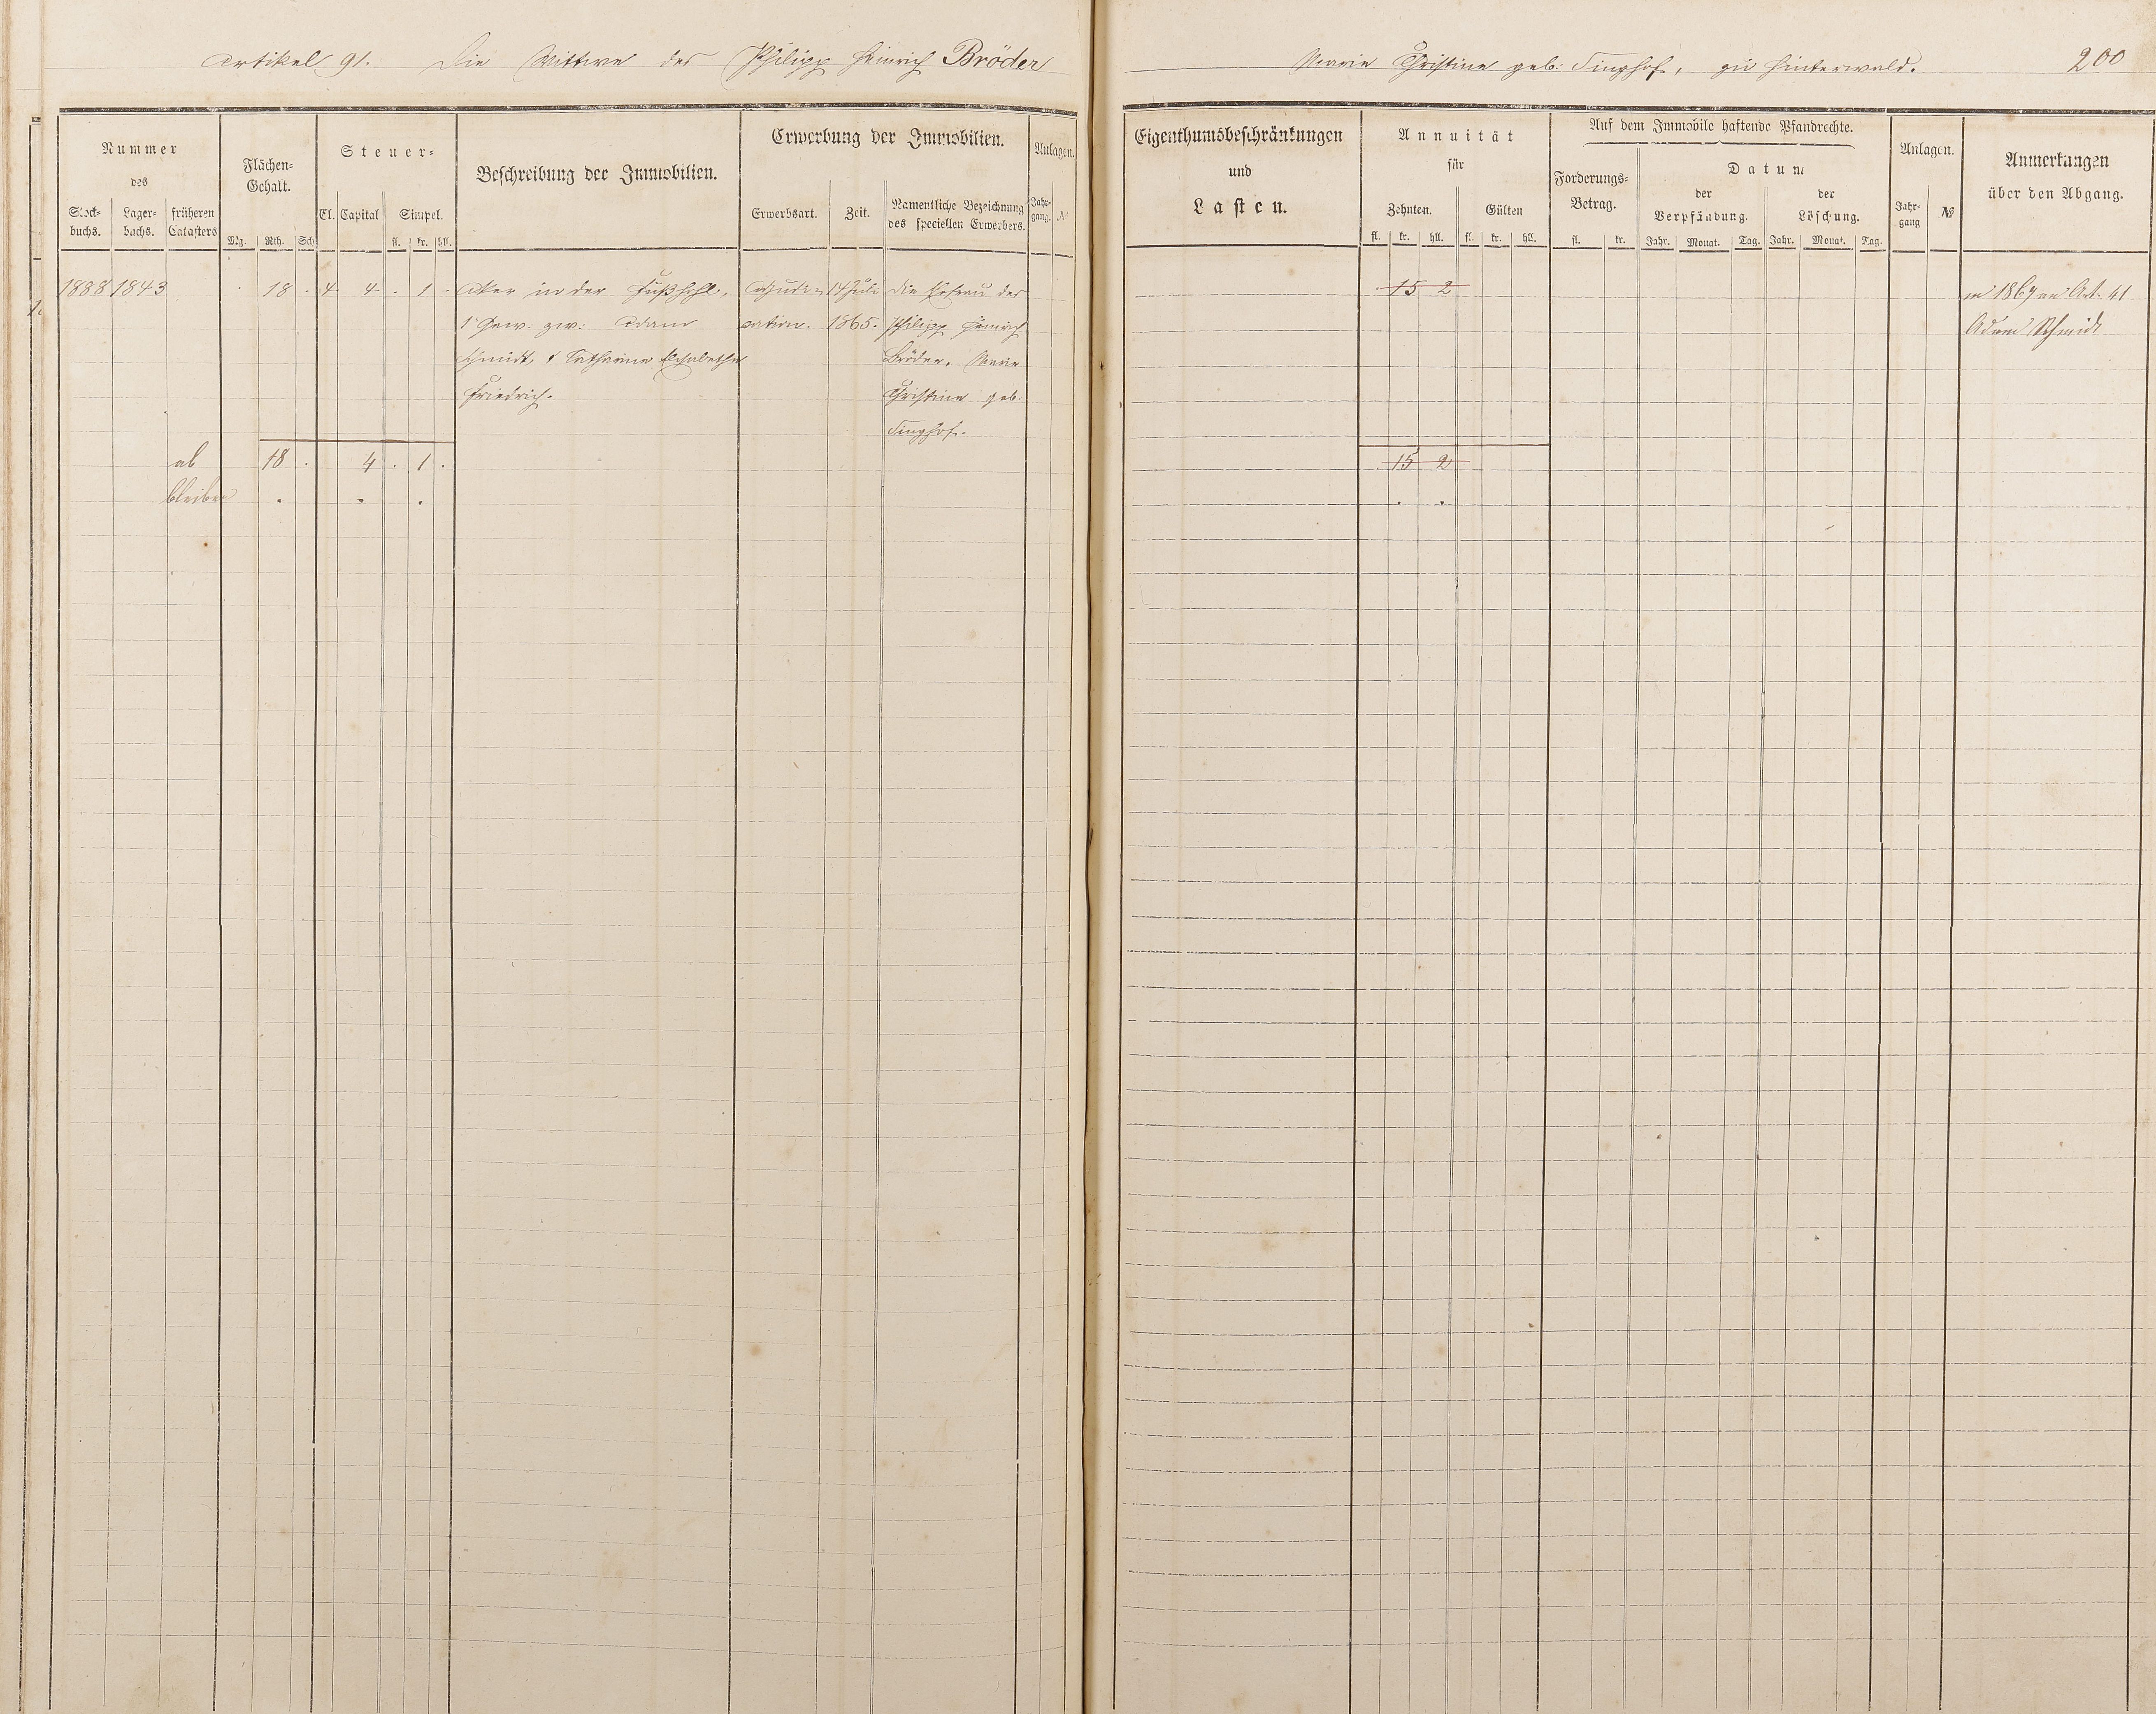 Artikel 91. Die Wittwe des Philipp Heinrich Bröder
Marie Christine geb: Singhof, zu Hinterwald.
200
Nummer
des
Stock-
buchs.
Lager-
buchs.
früheren
Catasters
Flächen-
Gehalt.
Mg. Rth. Sch.
Steuer-
Cl. Capital Simpel.
fl. kr. hll.
Beschreibung der Immobilien.
Erwerbung der Immobilien.
Erwerbsart. Zeit.
Namentliche Bezeichnung
des speciellen Erwerbers.
Anlagen.
Jahr-
gang. №
Eigenthumsbeschränkungen
und
Lasten.
Annuität
für
Zehnten. Gülten
fl. kr. hll. fl. kr. hll.
Auf dem Immobile haftende Pfandrechte.
Forderungs-
Betrag.
fl. kr.
Datum
der
Verpfändung.
der
Löschung.
Jahr. Monat. Tag. Jahr. Monat. Tag.
Anlagen.
Jahr-
gang №
Anmerkungen
über den Abgang.
1888 1843 . 18 . 4. 4 . 1 .
Aker in der Fußhohl,
1 Gew. zw: Adam
Schmidt, & Catharine Elisabethe
Friedrich.
14 Juli
1865.
die Ehefrau des
Philipp Heinrich
Bröder, Marie
Christine geb.
Singhof.
15 2
in 1867 an Art. 41
Adam Schmidt
ab 18 . 4 . 1 .
15 2
bleiben . . .
. .